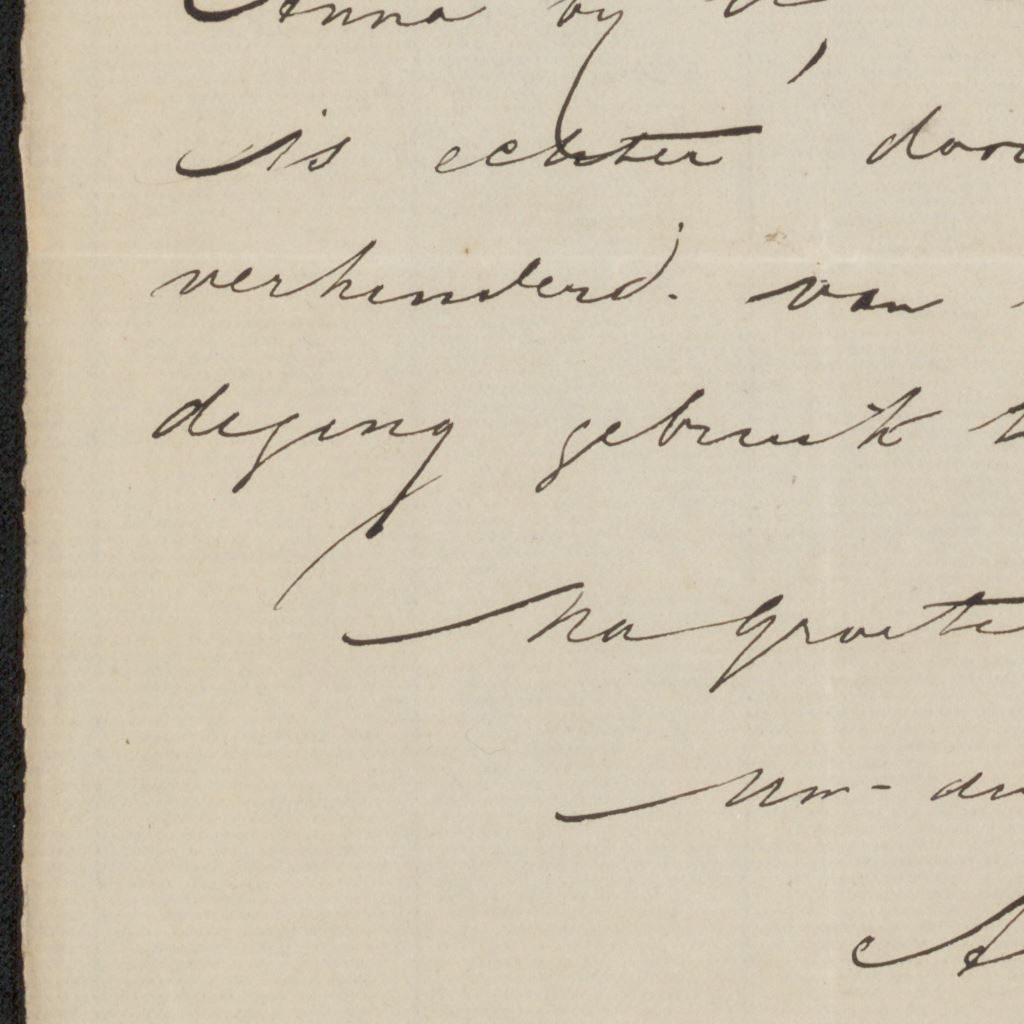 Anna by
is echter door
verhinderd. van
diging gebruik
Na Groete
Uw - 
A